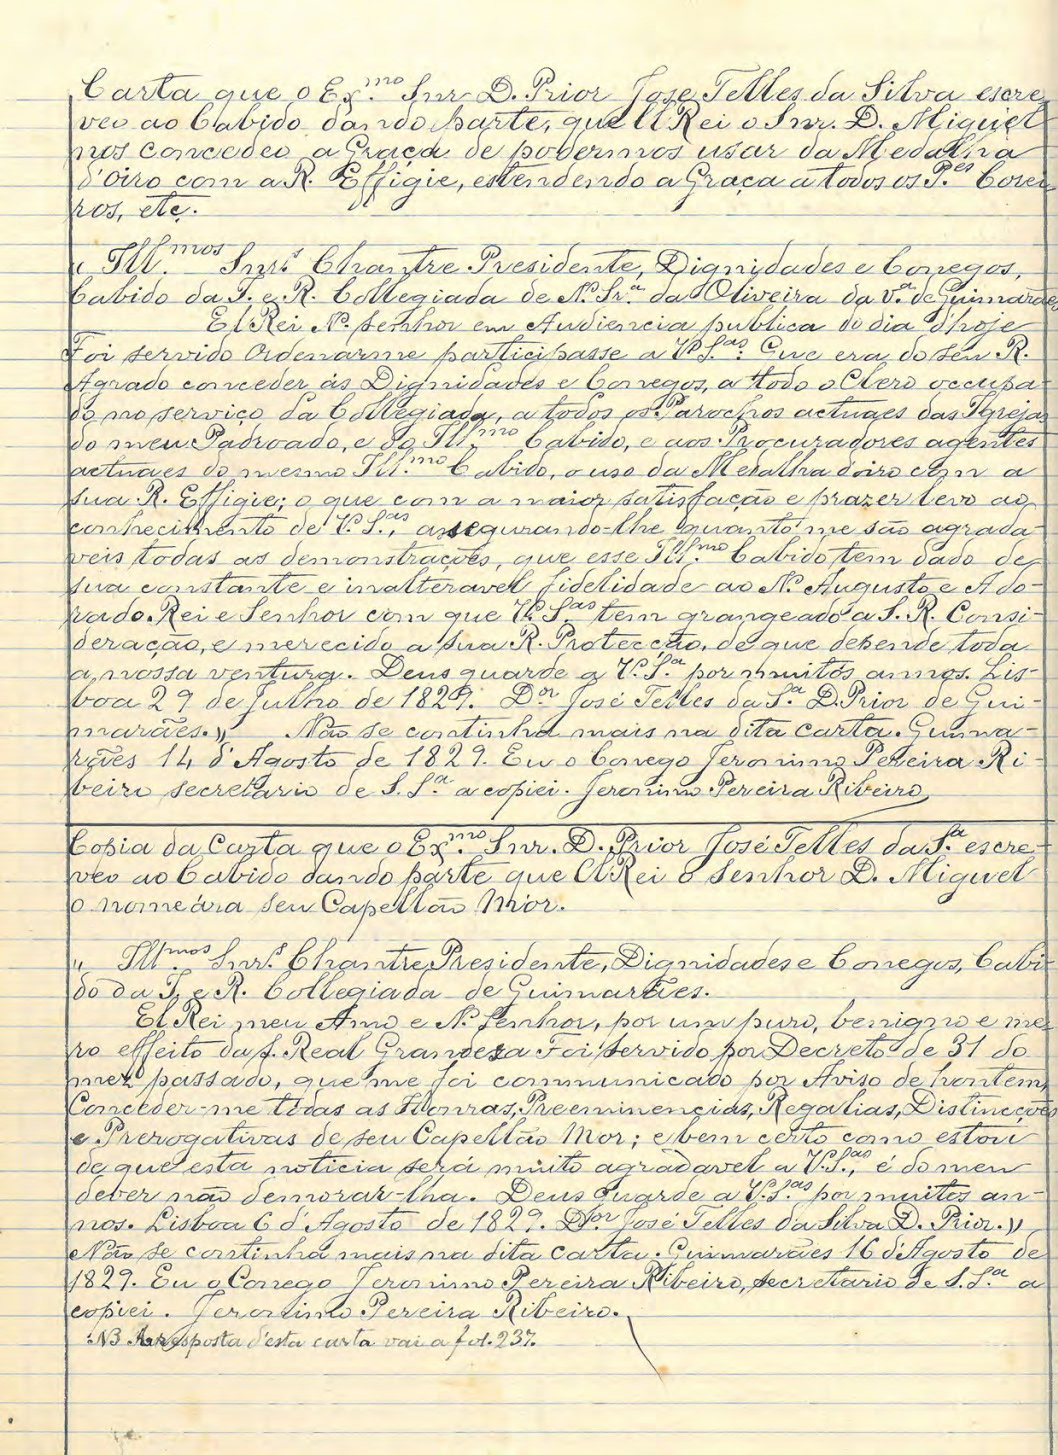 Carta que o Ex.mo Snr. D. Prior José Telles da Silva escre-
veo ao Cabido dando parte, que El Rei o Snr. D. Miguel
nos concedeo a Graça de podermos usar da Medalha
d'Oiro com a R. Effigie, estendendo a Graça a todos os P.es Corei-
ros, etc.
« Ill.mos Snrs. Chantre Presidente, Dignidades e Conegos,
Cabido da I. e R. Collegiada de N. Sr.a da Oliveira da V.a de Guimarães
El Rei N. Senhor em Audiencia publica do dia d'hoje
Foi servido Ordenarme participasse a V. S.as Que era do seu R.
Agrado conceder ás Dignidades e Conegos, a todo o Clero occupa-
do no serviço da Collegiada, a todos os Parochos actuaes das Igrejas
do meu Padroado, e do Ill.mo Cabido, e aos Procuradores agentes
actuaes do mesmo Ill.mo Cabido, o uso da Medalha doiro com a
sua R. Effigie; o que com a maior satisfação e prazer levo ao
conhecimento de V. S.as, assegurando-lhe quanto me são agrada-
veis todas as demonstrações, que esse Ill.mo Cabido tem dado de
sua constante e inalteravel fidelidade ao N. Augusto e Ado-
rado Rei e Senhor com que V. S.as tem grangeado a S. R. Consi-
deração, e merecido a sua R. Protecção, de que depende toda
a nossa ventura. Deus guarde a V. S.a por muitos annos. Lis-
boa 29 de Julho de 1829. D.or José Telles da S.a D. Prior de Gui-
marães.» Não se continha mais na dita carta. Guima-
rães 14 d'Agosto de 1829. Eu o Conego Jeronimo Pereira Ri-
beiro secretario de S. S.a a copiei. Jeronimo Pereira Ribeiro
Copia da Carta que o Ex.mo Snr. D. Prior José Telles da S.a escre-
veo ao Cabido dando parte que El Rei o Senhor D. Miguel
o nomeára seu Capellão Mór.
« Ill.mos Snrs. Chantre Presidente, Dignidades e Conegos, Cabi-
do da I. e R. Collegiada de Guimarães.
El Rei meu Amo e N. Senhor, por um puro, benigno e me-
ro effeito da S. Real Grandeza Foi servido por Decreto de 31 do
mez passado, que me foi communicado por Aviso de hontem,
Conceder-me todas as Honras, Preeminencias, Regalias, Distincções
e Prerogativas de seu Capellão Mor; e bem certo como estou
de que esta noticia será muito agradavel a V. S.as, é do meu
dever não demorar-lha. Deus guarde a V. S.as por muitos an-
nos. Lisboa 6 d'Agosto de 1829. D.or José Telles da Silva D. Prior.»
Não se continha mais na dita carta. Guimarães 16 d'Agosto de
1829. Eu o Conego Jeronimo Pereira Ribeiro, secretario de S. S.a a
copiei. Jeronimo Pereira Ribeiro.
NB A resposta d'esta carta vai a fol. 237.